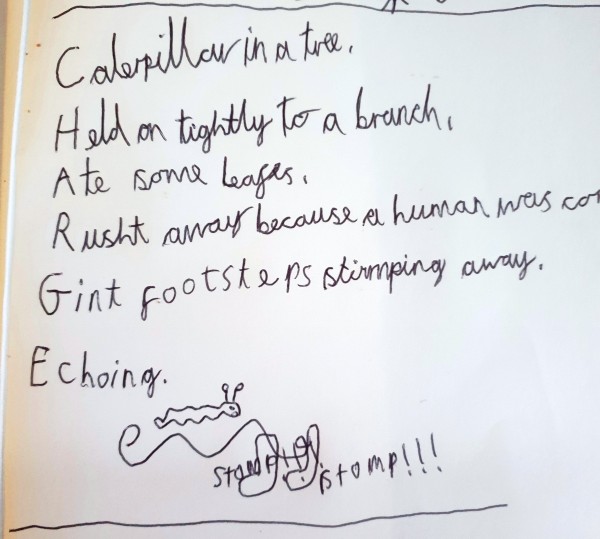 Caterpillar in a tree.
Held on tightly to a branch.
Ate some leafes.
Rusht away because a human was co
Gint footsteps stirmping away.
Echoing.
stomp stomp!!!